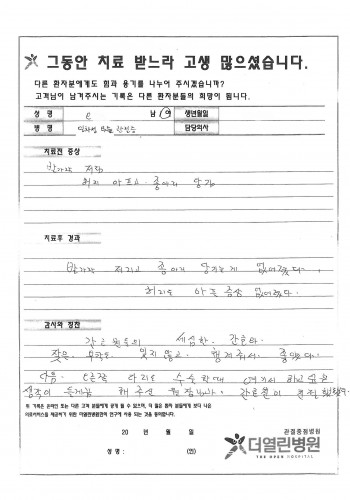 그동안 치료 받느라 고생 많으셨습니다.
다른 환자분에게도 힘과 용기를 나누어 주시겠습니까?
고객님이 남겨주시는 기록은 다른 환자분들의 희망이 됩니다.
성 명 e 남 여 생년월일
병 명 담당의사
치료전 증상
발가락 저림
허리 아프고 종아리 당김
치료후 경과
발가락 저리고 종아리 당기는게 없어졌다.
허리도 아픈 증상 없어졌다.
감사와 칭찬
간호원들의 세심한 간호와
잦은 부탁도 잊지않고 행해줘서 좋았다.
다음 오른쪽 다리도 수술할때 여기서 하고싶은
생각이 들게끔 해 주신 간호원이 친절했다.
위 기록은 온라인 또는 다른 고객 분들에게 공개 될 수 있으며, 더 많은 환자 분들에게 보다 나은
의료서비스를 제공하기 위한 더열린병원만의 연구에 사용 되는 것을 동의합니다.
20 년 월 일
성명 : (인)
관절중점병원
더열린병원
THE OPEN HOSPITAL